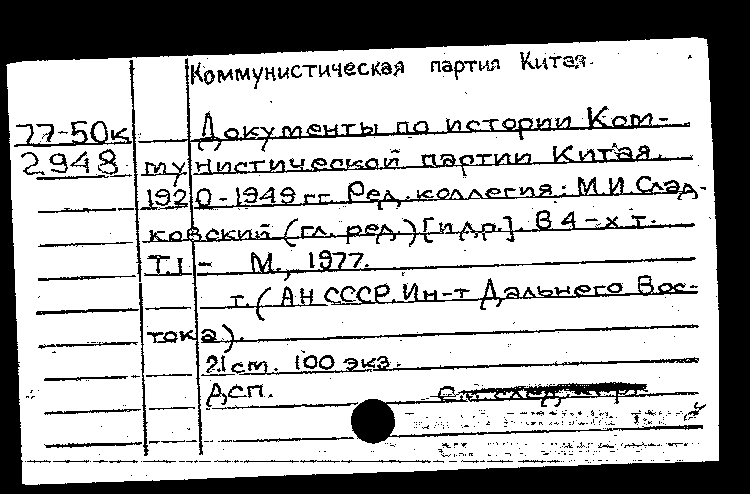 Коммунистическая партия Китая.
77-50к Документы по истории Ком-
2948 мунистической партии Китая.
1920-1949 гг. Ред. коллегия: М.И. Слад-
ковский (гл. ред.) [и др.]. В 4-х т.
Т.1- М., 1977.
т. (АН СССР. Ин-т Дальнего Вос-
тока).
21 ст. 100 экз.
ДСП.